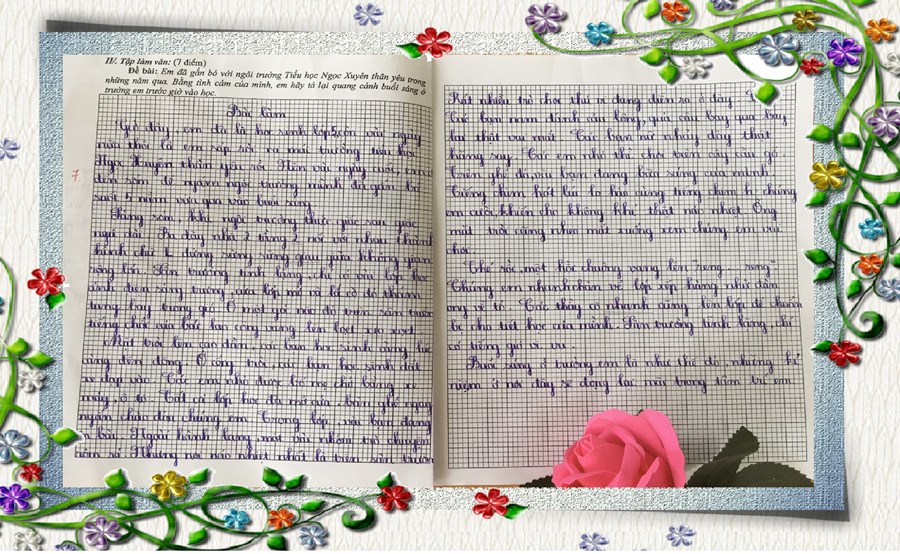 II/. Tập làm văn: (7 điểm)
Đề bài: Em đã gắn bó với ngôi trường Tiểu học Ngọc Xuyên thân yêu trong
những năm qua. Bằng tình cảm của mình, em hãy tả lại quang cảnh buổi sáng ở
trường em trước giờ vào học.
Bài làm
Giờ đây, em đã là học sinh lớp 5, còn vài ngày
nào thôi là em sắp rời xa mái trường tiểu học
Ngọc Xuyên thân yêu rồi. Nên vài ngày cuối, em
đến sớm để ngắm ngôi trường mình đã gắn bó
suốt 5 năm vừa qua vào buổi sáng.
Sáng sớm, khi ngôi trường thức giấc sau giấc
ngủ dài. Ba dãy nhà 2 tầng nối với nhau thành
hình chữ L đứng sừng sững giữa không gian
rộng lớn. Sân trường tĩnh lặng, chỉ có vài lớp học
ánh điện sáng trưng, cửa lớp mở và lá cờ đỏ thắm
tung bay trong gió. Ở một góc nào đó trên sân trường
tiếng chổi của bác lao công vang lên loẹt xoẹt.
Mặt trời lên cao dần, các bạn học sinh cũng lúc
càng đến đông. Ở cổng trời, các bạn học sinh dắt
xe đạp vào. Các em nhỏ được bố mẹ chở bằng xe
máy, ô tô. Tất cả lớp học đã mở cửa, bàn ghế ngay
ngắn chào đón chúng em. Trong lớp, vài bạn đang
bài. Ngoài hành lang, một vài nhóm trò chuyện
rôm rả. Nhưng nơi náo nhiệt nhất là trên sân trường
Rất nhiều trò chơi thú vị đang diễn ra ở đây.
Các bạn nam đánh cầu lông, quả cầu bay qua bay
lại thật vui mắt. Các bạn nữ nhảy dây thật
hăng say. Các em nhỏ thì chơi trên cây cầu gỗ.
Trên ghế đá, vài bạn đang bữa sáng của mình.
Tiếng chim hót líu lo hòa cùng tiếng chúng
em cười khiến cho không khí thật náo nhiệt. Ông
mặt trời cũng nheo mắt xuống xem chúng em vui
chơi.
Thế rồi, một hồi chuông vang lên "reng... reng".
Chúng em nhanh chân về lớp xếp hàng như đàn
ong vỡ tổ. Các thầy cô nhanh cũng lên lớp để chuẩn
bị cho tiết học của mình. Sân trường tĩnh lặng, chỉ
có tiếng gió vi vu.
Buổi sáng ở trường em là như thế đó, những kỉ
niệm ở nơi đây sẽ đọng lại mãi trong tâm trí em.